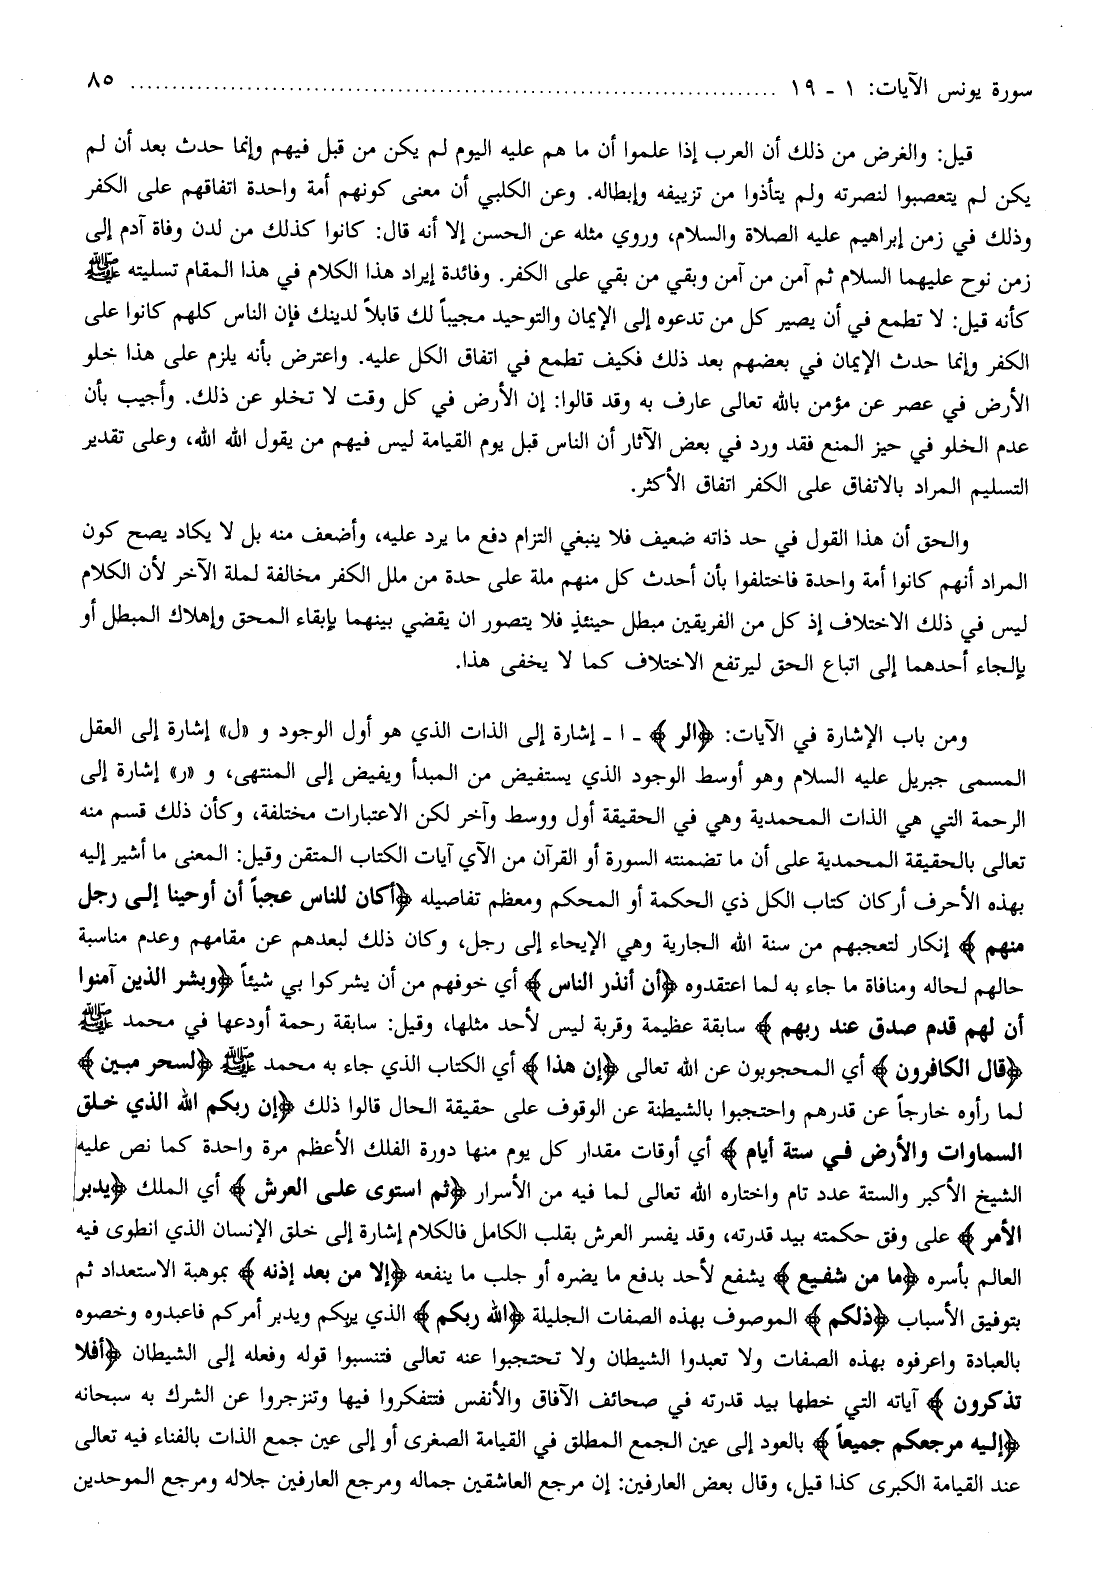 سورة يونس الآيات: ١ - ١٩ ........................................................................... ٨٥
قيل: والغرض من ذلك أن العرب إذا علموا أن ما هم عليه اليوم لم يكن من قبل فيهم وإنما حدث بعد أن لم
يكن لم يتعصبوا لنصرته ولم يتأذوا من تزييفه وإبطاله. وعن الكلبي أن معنى كونهم أمة واحدة اتفاقهم على الكفر
وذلك في زمن إبراهيم عليه الصلاة والسلام، وروي مثله عن الحسن إلا أنه قال: كانوا كذلك من لدن وفاة آدم إلى
زمن نوح عليهما السلام ثم آمن من آمن وبقي من بقي على الكفر. وفائدة إيراد هذا الكلام في هذا المقام تسليته ﷺ
كأنه قيل: لا تطمع في أن يصير كل من تدعوه إلى الإيمان والتوحيد مجيباً لك قابلاً لدينك فإن الناس كلهم كانوا على
الكفر وإنما حدث الإيمان في بعضهم بعد ذلك فكيف تطمع في اتفاق الكل عليه. واعترض بأنه يلزم على هذا خلو
الأرض في عصر عن مؤمن بالله تعالى عارف به وقد قالوا: إن الأرض في كل وقت لا تخلو عن ذلك. وأجيب بأن
عدم الخلو في حيز المنع فقد ورد في بعض الآثار أن الناس قبل يوم القيامة ليس فيهم من يقول الله الله، وعلى تقدير
التسليم المراد بالاتفاق على الكفر اتفاق الأكثر.
والحق أن هذا القول في حد ذاته ضعيف فلا ينبغي التزام دفع ما يرد عليه، وأضعف منه بل لا يكاد يصح كون
المراد أنهم كانوا أمة واحدة فاختلفوا بأن أحدث كل منهم ملة على حدة من ملل الكفر مخالفة لملة الآخر لأن الكلام
ليس في ذلك الاختلاف إذ كل من الفريقين مبطل حينئذٍ فلا يتصور ان يقضي بينهما بإبقاء المحق وإهلاك المبطل أو
بإلجاء أحدهما إلى اتباع الحق ليرتفع الاختلاف كما لا يخفى هذا.
ومن باب الإشارة في الآيات: ﴿الر﴾ - ا - إشارة إلى الذات الذي هو أول الوجود و «ل» إشارة إلى العقل
المسمى جبريل عليه السلام وهو أوسط الوجود الذي يستفيض من المبدأ ويفيض إلى المنتهى، و «ر» إشارة إلى
الرحمة التي هي الذات المحمدية وهي في الحقيقة أول ووسط وآخر لكن الاعتبارات مختلفة، وكأن ذلك قسم منه
تعالى بالحقيقة المحمدية على أن ما تضمنته السورة أو القرآن من الآي آيات الكتاب المتقن وقيل: المعنى ما أشير إليه
بهذه الأحرف أركان كتاب الكل ذي الحكمة أو المحكم ومعظم تفاصيله ﴿أكان للناس عجباً أن أوحينا إلى رجل
منهم﴾ إنكار لتعجبهم من سنة الله الجارية وهي الإيحاء إلى رجل، وكان ذلك لبعدهم عن مقامهم وعدم مناسبة
حالهم لحاله ومنافاة ما جاء به لما اعتقدوه ﴿أن أنذر الناس﴾ أي خوفهم من أن يشركوا بي شيئاً ﴿وبشر الذين آمنوا
أن لهم قدم صدق عند ربهم﴾ سابقة عظيمة وقربة ليس لأحد مثلها، وقيل: سابقة رحمة أودعها في محمد ﷺ
﴿قال الكافرون﴾ أي المحجوبون عن الله تعالى ﴿إن هذا﴾ أي الكتاب الذي جاء به محمد ﷺ ﴿لسحر مبين﴾
لما رأوه خارجاً عن قدرهم واحتجبوا بالشيطنة عن الوقوف على حقيقة الحال قالوا ذلك ﴿إن ربكم الله الذي خلق
السماوات والأرض في ستة أيام﴾ أي أوقات مقدار كل يوم منها دورة الفلك الأعظم مرة واحدة كما نص عليه
الشيخ الأكبر والستة عدد تام واختاره الله تعالى لما فيه من الأسرار ﴿ثم استوى على العرش﴾ أي الملك ﴿يدبر
الأمر﴾ على وفق حكمته بيد قدرته، وقد يفسر العرش بقلب الكامل فالكلام إشارة إلى خلق الإنسان الذي انطوى فيه
العالم بأسره ﴿ما من شفيع﴾ يشفع لأحد بدفع ما يضره أو جلب ما ينفعه ﴿إلا من بعد إذنه﴾ بموهبة الاستعداد ثم
بتوفيق الأسباب ﴿ذلكم﴾ الموصوف بهذه الصفات الجليلة ﴿الله ربكم﴾ الذي يربكم ويدبر أمركم فاعبدوه وخصوه
بالعبادة واعرفوه بهذه الصفات ولا تعبدوا الشيطان ولا تحتجبوا عنه تعالى فتنسبوا قوله وفعله إلى الشيطان ﴿أفلا
تذكرون﴾ آياته التي خطها بيد قدرته في صحائف الآفاق والأنفس فتتفكروا فيها وتنزجروا عن الشرك به سبحانه
﴿إليه مرجعكم جميعاً﴾ بالعود إلى عين الجمع المطلق في القيامة الصغرى أو إلى عين جمع الذات بالفناء فيه تعالى
عند القيامة الكبرى كذا قيل، وقال بعض العارفين: إن مرجع العاشقين جماله ومرجع العارفين جلاله ومرجع الموحدين